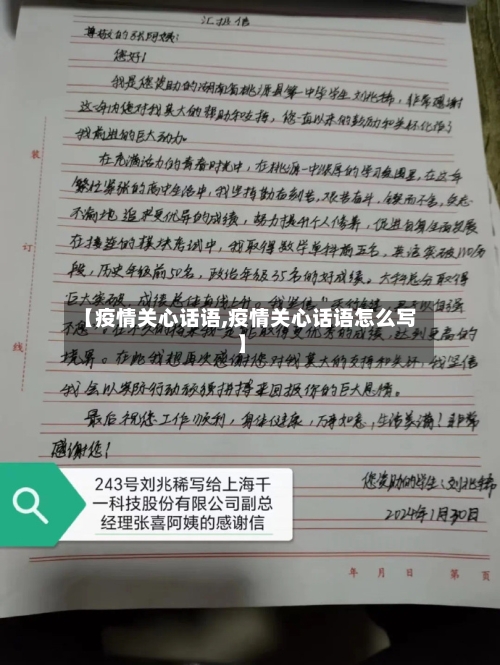 汇报信
尊敬的张阿姨：
您好！
我是您资助的湖南省桃源县第一中学学生刘兆稀，非常感谢
这一年内您对我莫大的帮助和支持，您一直以来的鼓励和关怀化作了
我前进的巨大动力。
在充满活力的青春时光中，在桃源一中浓厚的学习氛围里，在这年
繁忙紧张的高中生活中，我坚持勤奋刻苦，艰苦奋斗，锲而不舍，矢志
不渝地追求更优异的成绩，努力提升个人修养，促进自身全面发展
在接连的模块考试中，我取得数学单科前五名，英语突破110分
段，历史年级前50名，政治年级35名的好成绩。大科总分取得
巨大突破，成绩总体直线上升。我坚信"天行健，
【疫情关心话语,疫情关心话语怎么写
】
境界。在此我想再次感谢您对我莫大的支持和关怀，我坚信
我会以实际行动顽强拼搏来回报你的巨大恩情。
最后祝您工作顺利，身体健康，万事如意，生活美满！非常
感谢您！
您资助的学生：刘兆稀
2024年1月30日
243号刘兆稀写给上海千
一科技股份有限公司副总
经理张喜阿姨的感谢信
装
订
线
年 月 日 第 页